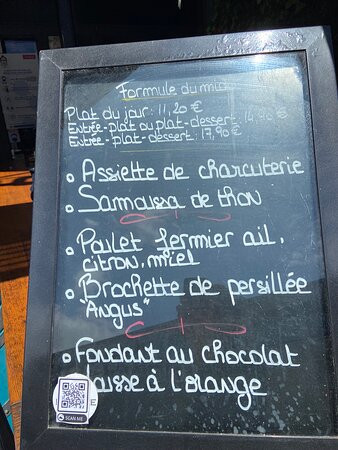 Formule du midi
Plat du jour: 11,20 €
Entrée-plat ou plat-dessert: 14,90 €
Entrée-plat-dessert: 17,90 €
• Assiette de charcuterie
• Samoussa de thon
• Poulet fermier ail,
citron, miel
• Brochette de persillée
"Angus"
• Fondant au chocolat
sauce à l'orange
SCAN ME